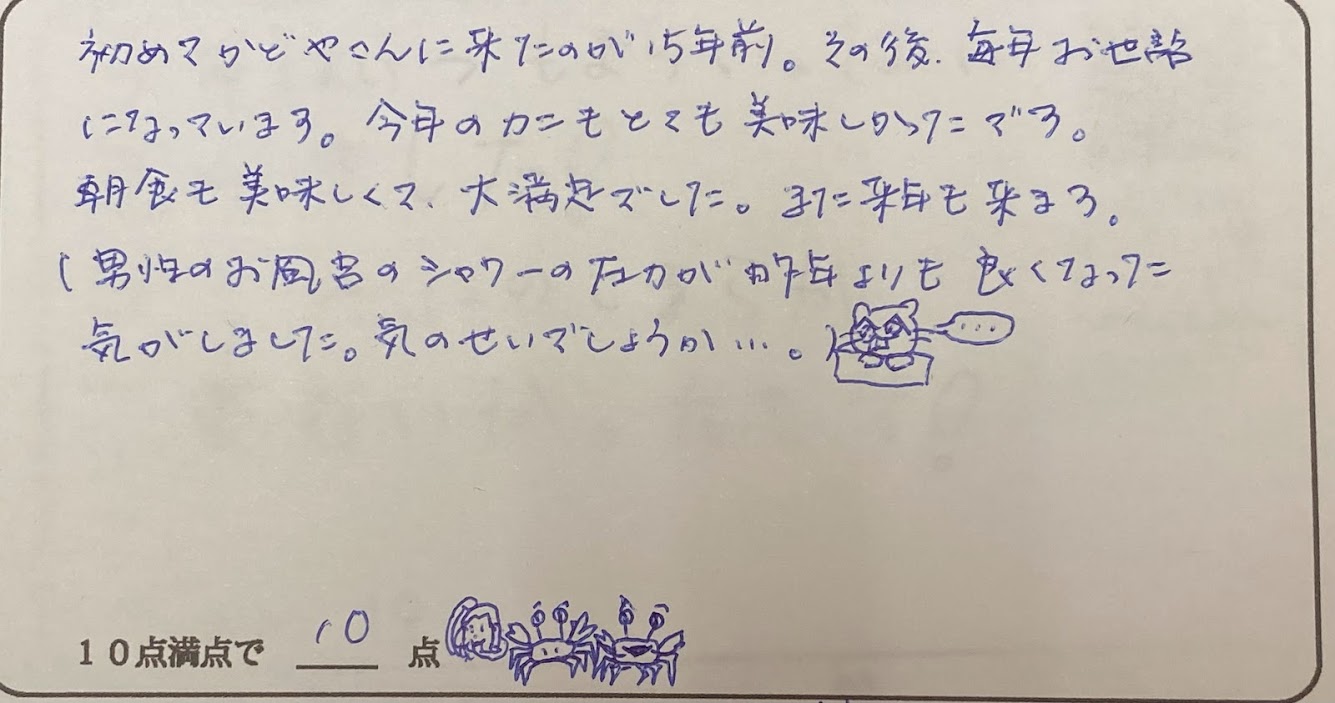 初めてかどやさんに来たのが15年前。その後、毎年お世話
になっています。今年のカニもとても美味しかったです。
朝食も美味しくて、大満足でした。また来年も来ます。
(男性のお風呂のシャワーの圧力が昨年よりも良くなった
気がしました。気のせいでしょうか…。)
...
10点満点で 10 点